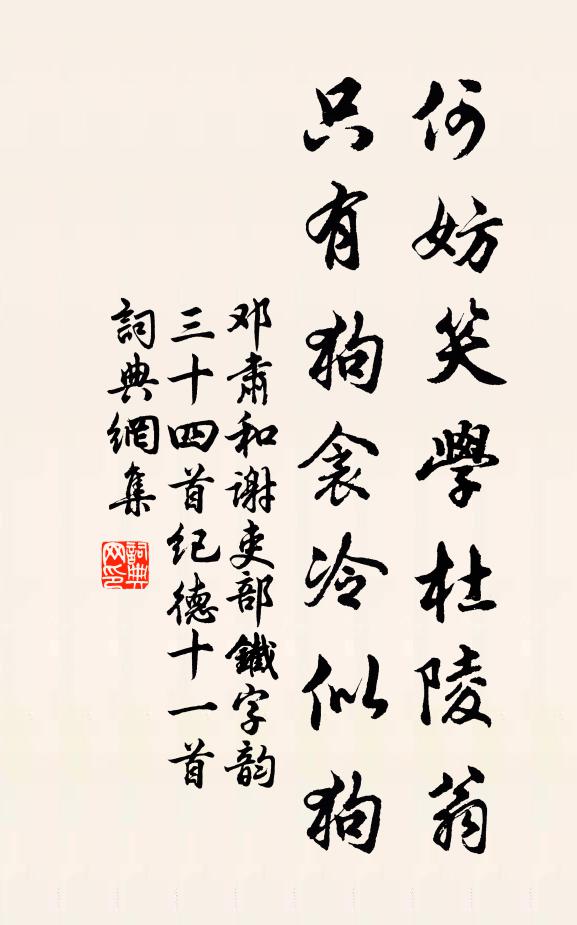 何妨笑學杜陵翁
只有狗衾冷似狗
邓肅和谢吏部鐵字韵
三十四首纪德十一首
詞典網集
詞典网印